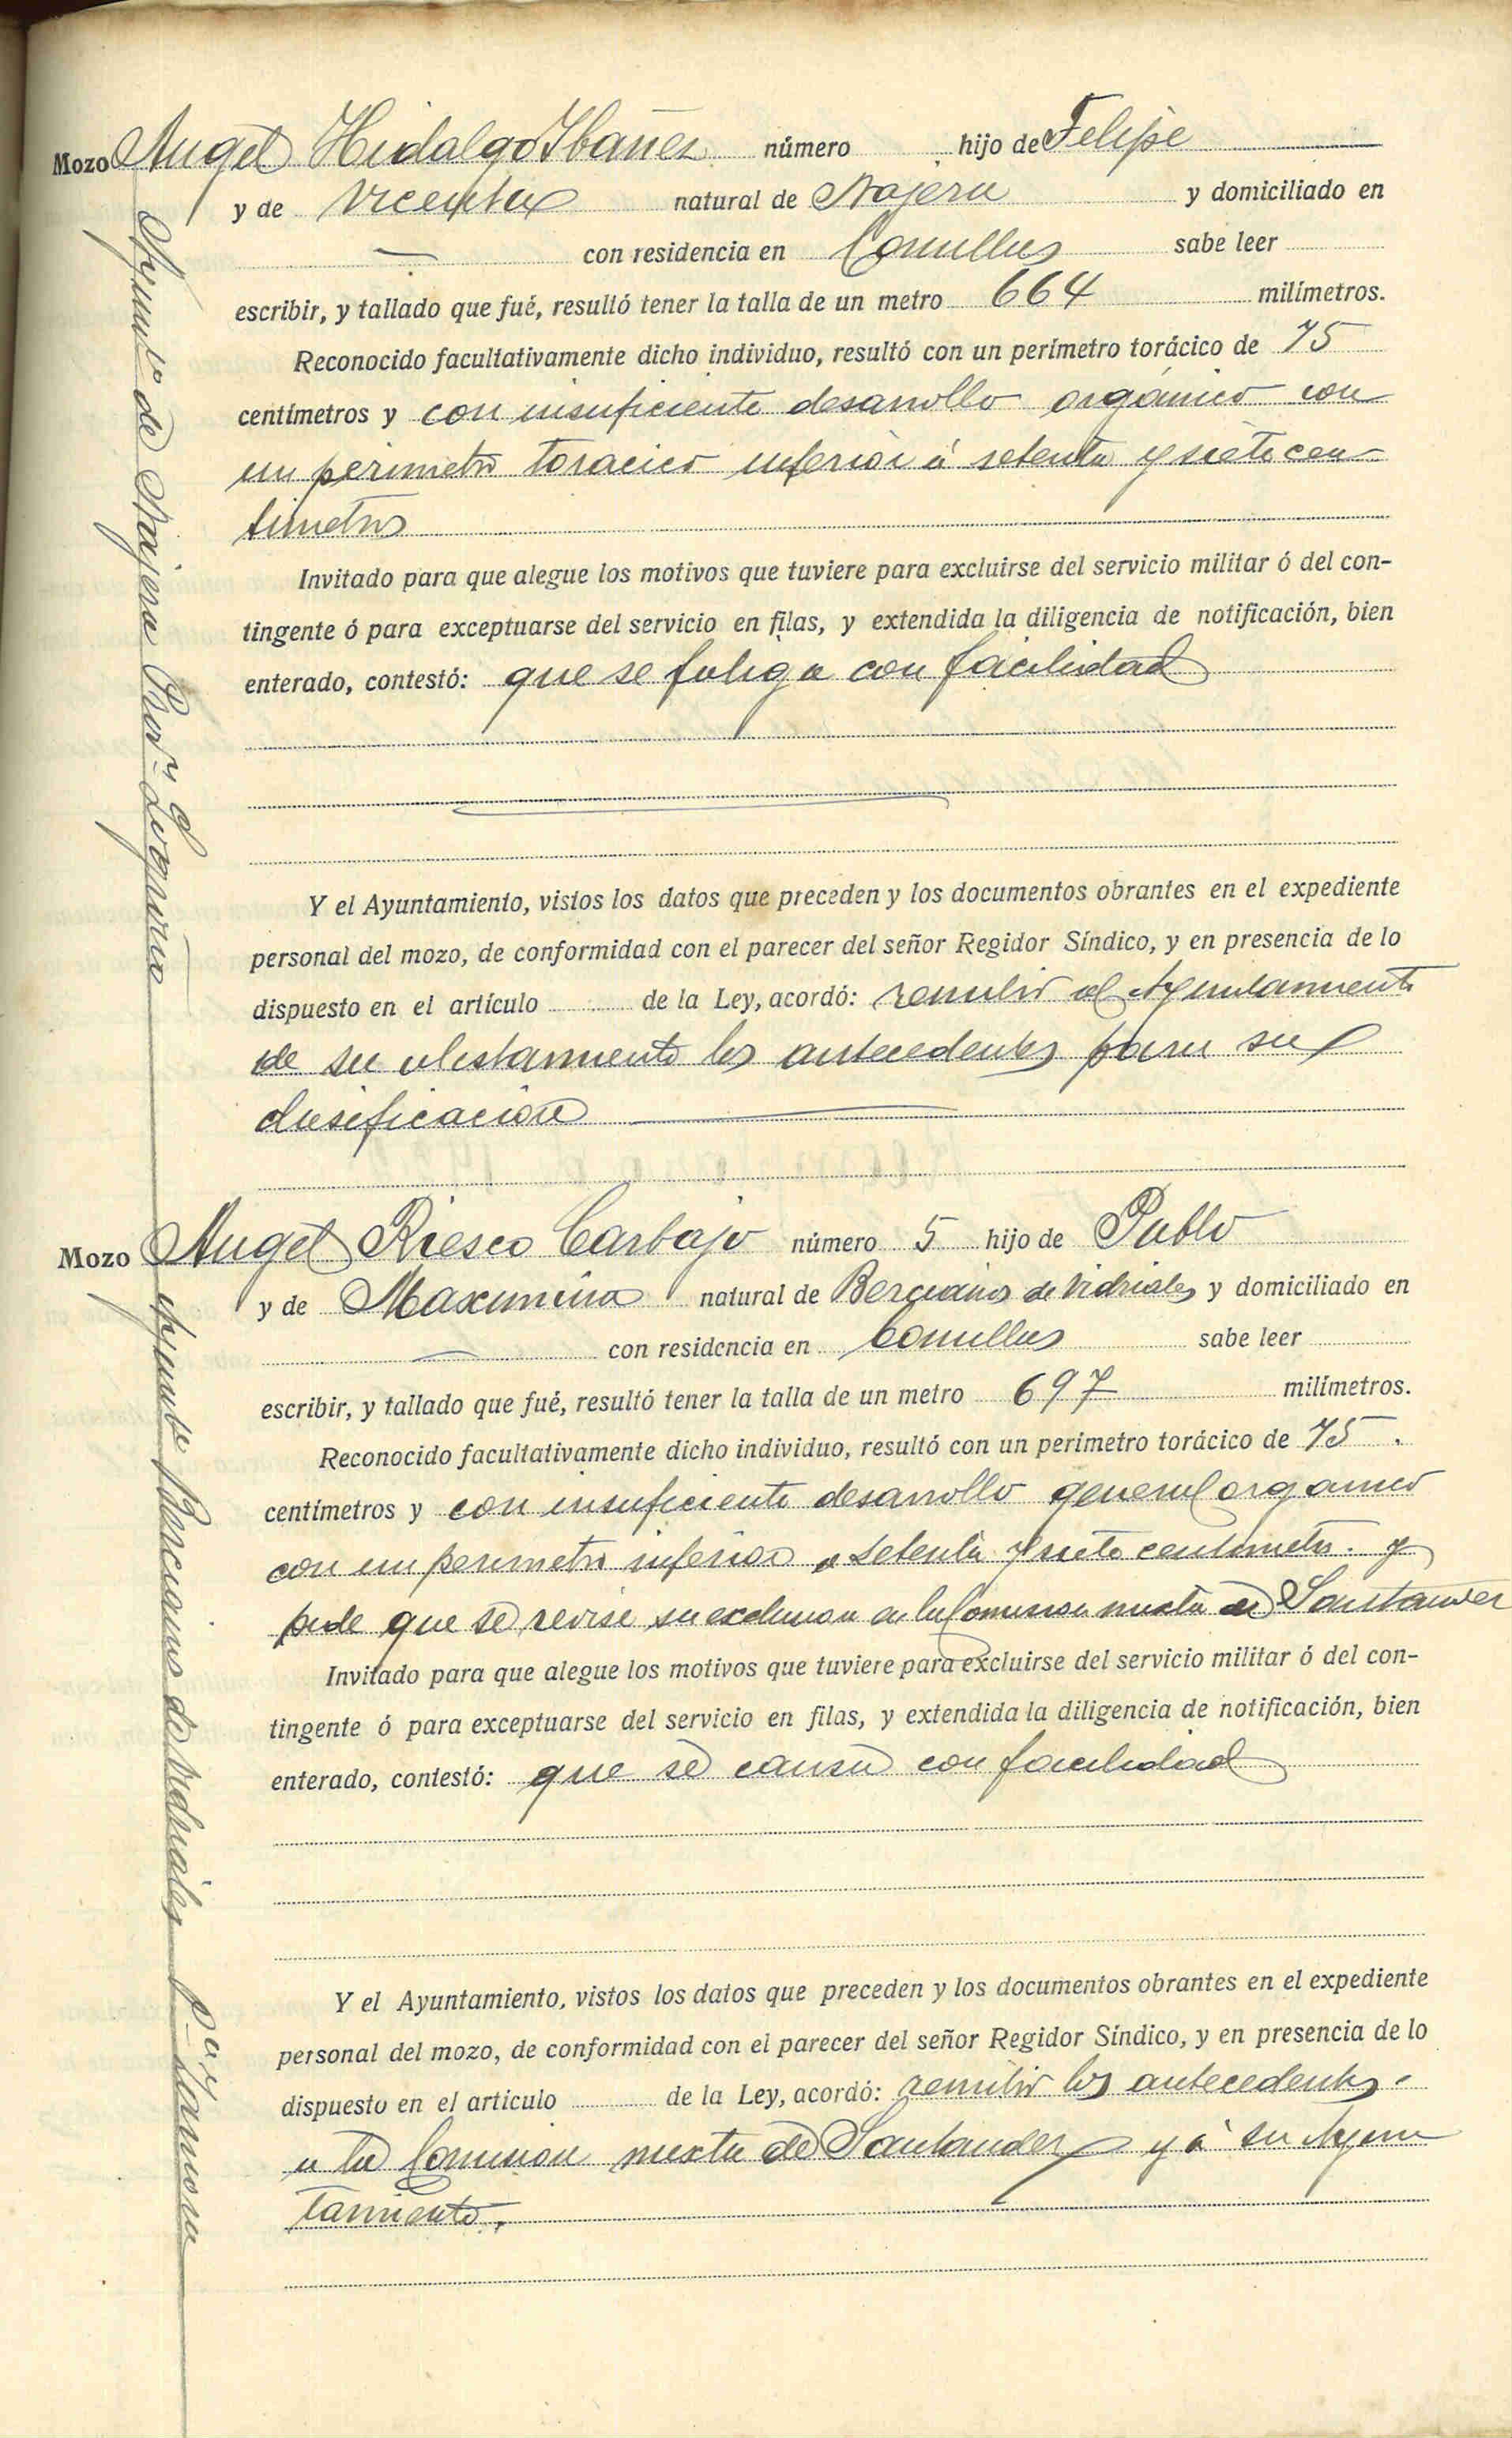 Mozo Angel Hidalgo Ibañez número hijo de Felipe
y de Vicenta natural de Najera y domiciliado en
— con residencia en Comillas sabe leer
escribir, y tallado que fué, resultó tener la talla de un metro 664 milímetros.
Reconocido facultativamente dicho individuo, resultó con un perímetro torácico de 75
centímetros y con insuficiente desarrollo orgánico con
un perimetro toracico inferior á setenta y siete cen-
timetros
Invitado para que alegue los motivos que tuviere para excluirse del servicio militar ó del con-
tingente ó para exceptuarse del servicio en filas, y extendida la diligencia de notificación, bien
enterado, contestó: que se fatiga con facilidad
Y el Ayuntamiento, vistos los datos que preceden y los documentos obrantes en el expediente
personal del mozo, de conformidad con el parecer del señor Regidor Síndico, y en presencia de lo
dispuesto en el artículo de la Ley, acordó: remitir al Ayuntamiento
de su alistamiento los antecedentes para su
clasificación
Ayunt.o de Najera Prov.a d Logroño
Mozo Angel Riesco Carbajo número 5 hijo de Pablo
y de Maximina natural de Bercianos de Vidriales y domiciliado en
— con residencia en Comillas sabe leer
escribir, y tallado que fué, resultó tener la talla de un metro 697 milímetros.
Reconocido facultativamente dicho individuo, resultó con un perímetro torácico de 75.
centímetros y con insuficiente desarrollo general organico
con un perimetro inferior a setenta y siete centimetros. y
pide que se revise su exclusion en la Comision mixta de Santander
Invitado para que alegue los motivos que tuviere para excluirse del servicio militar ó del con-
tingente ó para exceptuarse del servicio en filas, y extendida la diligencia de notificación, bien
enterado, contestó: que se cansa con facilidad
Y el Ayuntamiento, vistos los datos que preceden y los documentos obrantes en el expediente
personal del mozo, de conformidad con el parecer del señor Regidor Síndico, y en presencia de lo
dispuesto en el artículo de la Ley, acordó: remitir los antecedentes
a la Comision mixta de Santander y á su Ayun
tamiento.
Ayunto Bercianos de Vidriales P.a Zamora